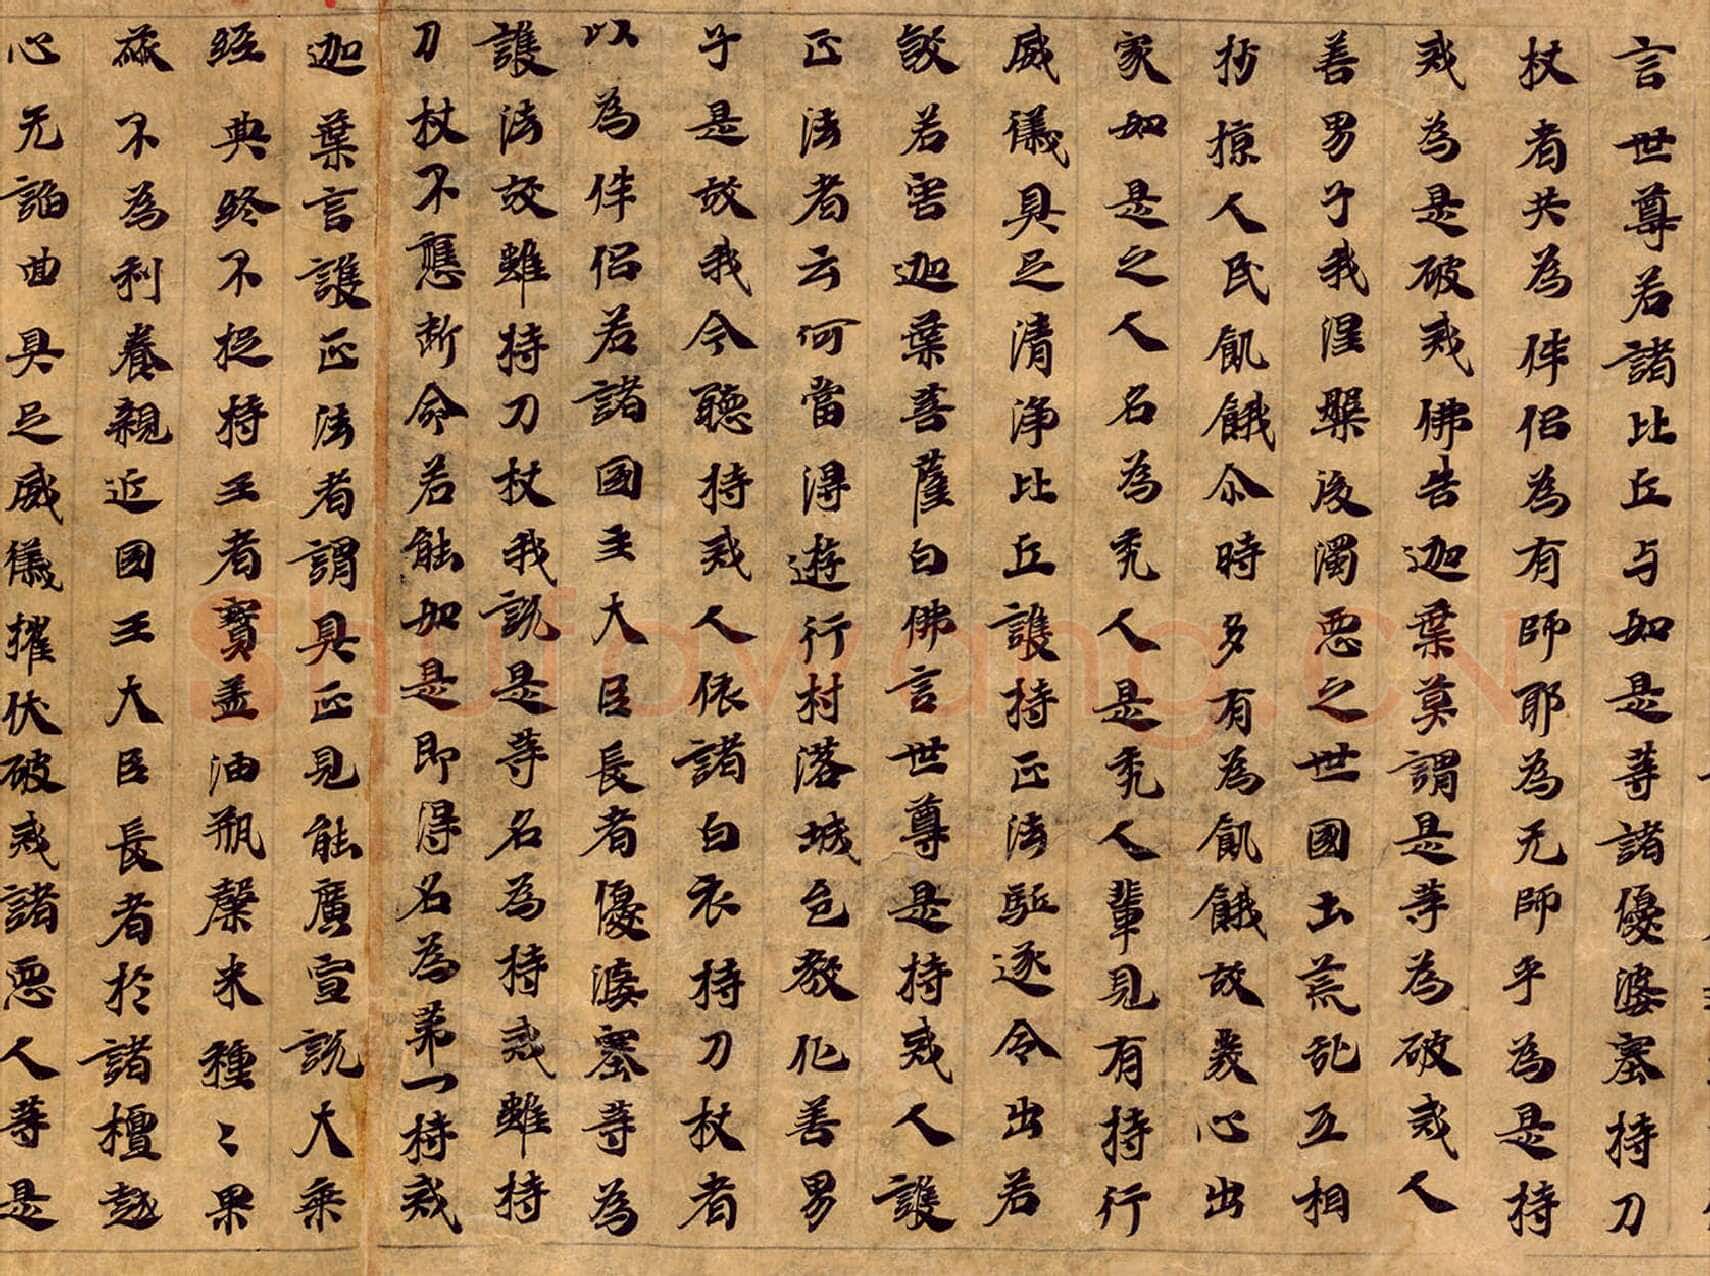 言世尊若諸比丘与如是等諸優婆塞持刀
杖者共為伴侶為有師耶為无師乎為是持
戒為是破戒佛告迦葉莫謂是等為破戒人
善男子我涅槃後濁惡之世國土荒乱互相
抄掠人民飢餓尒時多有為飢餓故發心出
家如是之人名為禿人是禿人輩見有持行
威儀具足清淨比丘護持正法駈逐令出若
煞若害迦葉菩薩白佛言世尊是持戒人護
正法者云何當得遊行村落城邑教化善男
子是故我今聽持戒人依諸白衣持刀杖者
以為伴侶若諸國王大臣長者優婆塞等為
護法故雖持刀杖我說是等名為持戒雖持
刀杖不應断命若能如是即得名為第一持戒
迦葉言護正法者謂具正見能廣宣說大乘
經典終不捉持王者寶盖油瓶穀米種〻果
蓏不為利養親近國王大臣長者於諸檀越
心无諂曲具足威儀摧伏破戒諸惡人等是
shufawang.cn